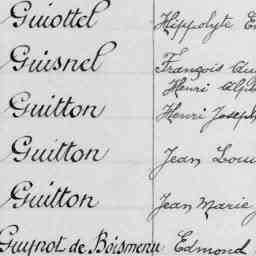 Guiottel Hippolyte
Guisnel François
Henri
Guitton Henri Joseph
Guitton Jean Louis
Guitton Jean Marie
Guynot de Boismenu Edmond